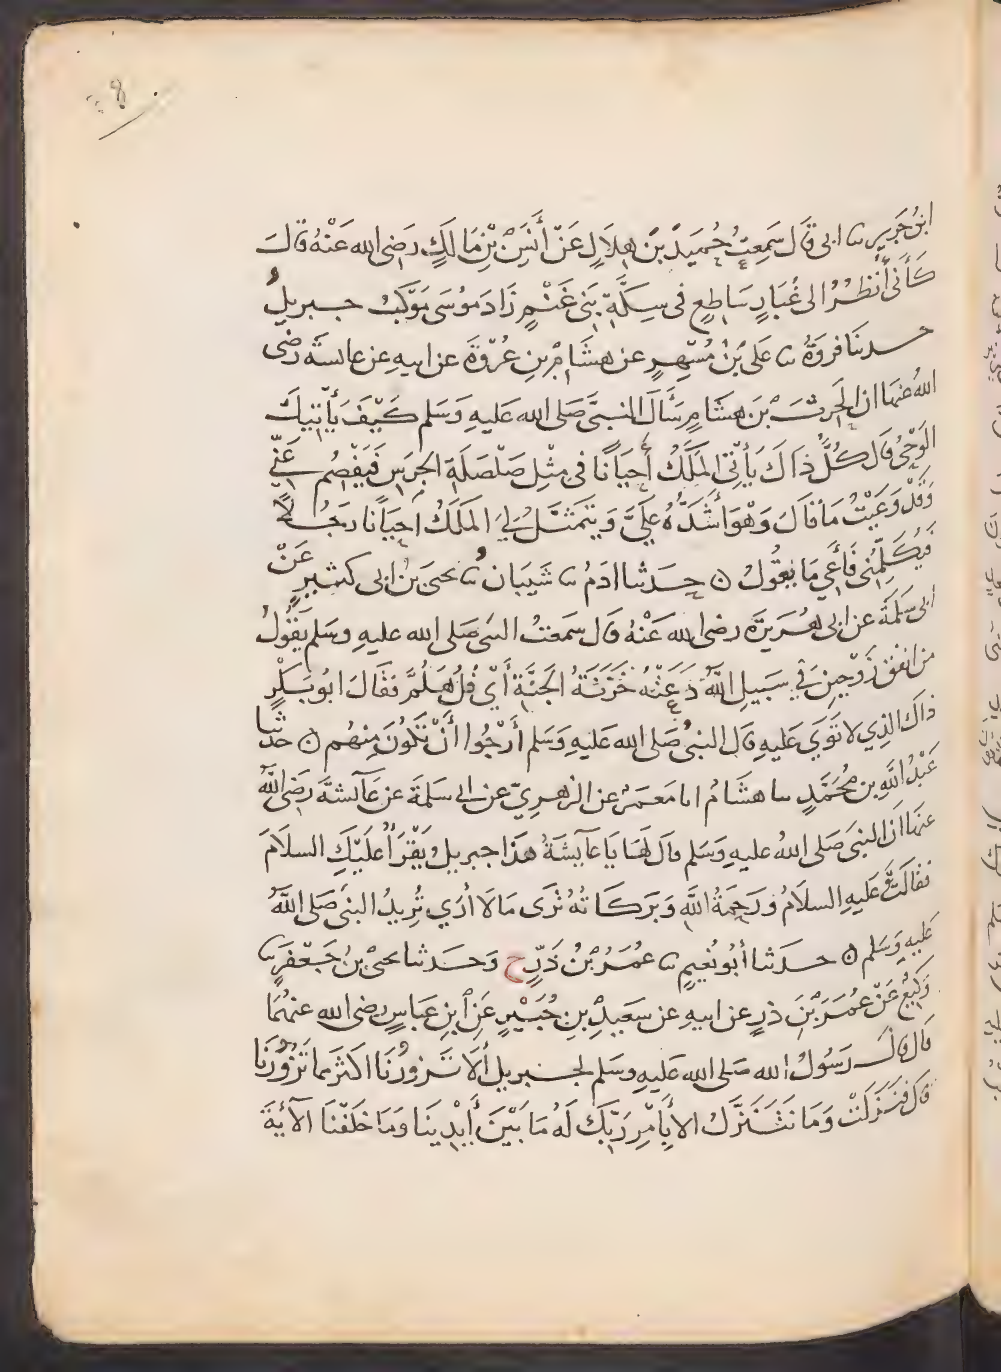 ابنُ جَرِيرٍ نا ابى قَالَ سَمِعتُ حُمَيدَ بْنَ هِلَالٍ عَنْ أَنَسِ بْنِ مَالِكٍ رَضِىَ الله عَنْهُ قَالَ
كَأَنِّى أَنْظُرُ الى غُبَارٍ سَاطِعٍ فى سِكَّةِ بَنِى غَنْمٍ زَادَ مُوسَى مَوْكِبُ جبريلُ
حدثنَا فروَةُ نا عَلى بْنُ مُسْهِرٍ عن هشَامِ بْنِ عُرْوَةَ عن ابيهِ عن عائشَةَ رَضى
اللهُ عنهَا ان الحَرِثَ بْنَ هِشَامٍ سَأَلَ النبىَّ صَلى الله عَليهِ وَسَلم كَيْفَ يَأْتِيكَ
الوَحْىُ قَال كُلُّ ذَاكَ يَأْتِى المَلَكُ أَحيَانًا فى مِثْلِ صَلْصَلَةِ الجَرَسِ فَيَفْصِمُ عَنِّى
وَقَدْ وَعَيْتُ مَا قَالَ وَهْوَ أَشَدُّهُ عَلَىَّ وَيَتَمَثَّلُ لِىَ المَلَكُ أَحيَانًا رَجُلًا
فَيُكَلِّمُنِى فَأَعِى مَا يَقُولُ ۝ حدثنا ادَمُ نا شَيبَان نا يحيَى بنُ ابى كثيرٍ عَنْ
ابى سَلَمَةَ عن ابى هُرَيرَةَ رضى الله عَنْهُ قَال سَمعتُ النبى صَلى الله عليهِ وسَلم يَقُولُ
من انفق زَوْجينِ فى سَبيلِ اللَّهِ دَعَتْهُ خَزَنَةُ الجَنَّةِ أَىْ فُلُ هَلُمَّ فقَالَ ابُو بَكْرٍ
ذاكَ الذِي لا تَوَى عَليهِ قَال النبىُّ صَلى الله عَليهِ وَسَلم أَرْجُوا أَنْ تَكُونَ مِنهُم ۝ حدثنا
عَبْدُ اللَّهِ بن مُحَمَّدٍ نا هشَامُ انا مَعمَرٌ عن الزهرِىّ عن ابى سَلمَةَ عن عَآئشَةَ رَضىَ اللَّهُ
عنهَا انَ النبىَ صَلى اللهُ عليهِ وَسَلم قال لَهَا يَا عَآيشَةُ هذَا جبريلُ يَقْرَأُ عَلَيْكِ السلاَمَ
فقَالَت عَليهِ السلاَمُ وَرَحمَةُ اللَّهِ وَبَرَكَاتُهُ تُرَى مَا لاَ أَرَى تُرِيدُ النبىَ صَلى اللَّهُ
عَليهِ وَسَلم ۝ حدثنا أَبُو نُعَيمٍ نا عُمَرُ بْنُ ذَرٍّ ح وَحَدثنا يحيىَ بنُ جَعْفَرٍ نا
وَكيعٌ عَنْ عُمَرَ بْنِ ذرٍ عن ابيهِ عن سَعيدِ بْنِ جُبَيْرٍ عَنِ ابنِ عَباسٍ رضى الله عنهُمَا
قَال قَالَ رَسُولُ الله صَلى الله عَليهِ وسَلم لجبريل أَلاَ تَزورُنَا اكثرَ مما تَزُورُنَا
قَال فنَزَلَتْ وَمَا نَتَنَزَّلُ الا بِأَمْرِ رَبِّكَ لَهُ مَا بَيْنَ أَيْدِينَا وَمَا خَلفَنَا الآيَةَ